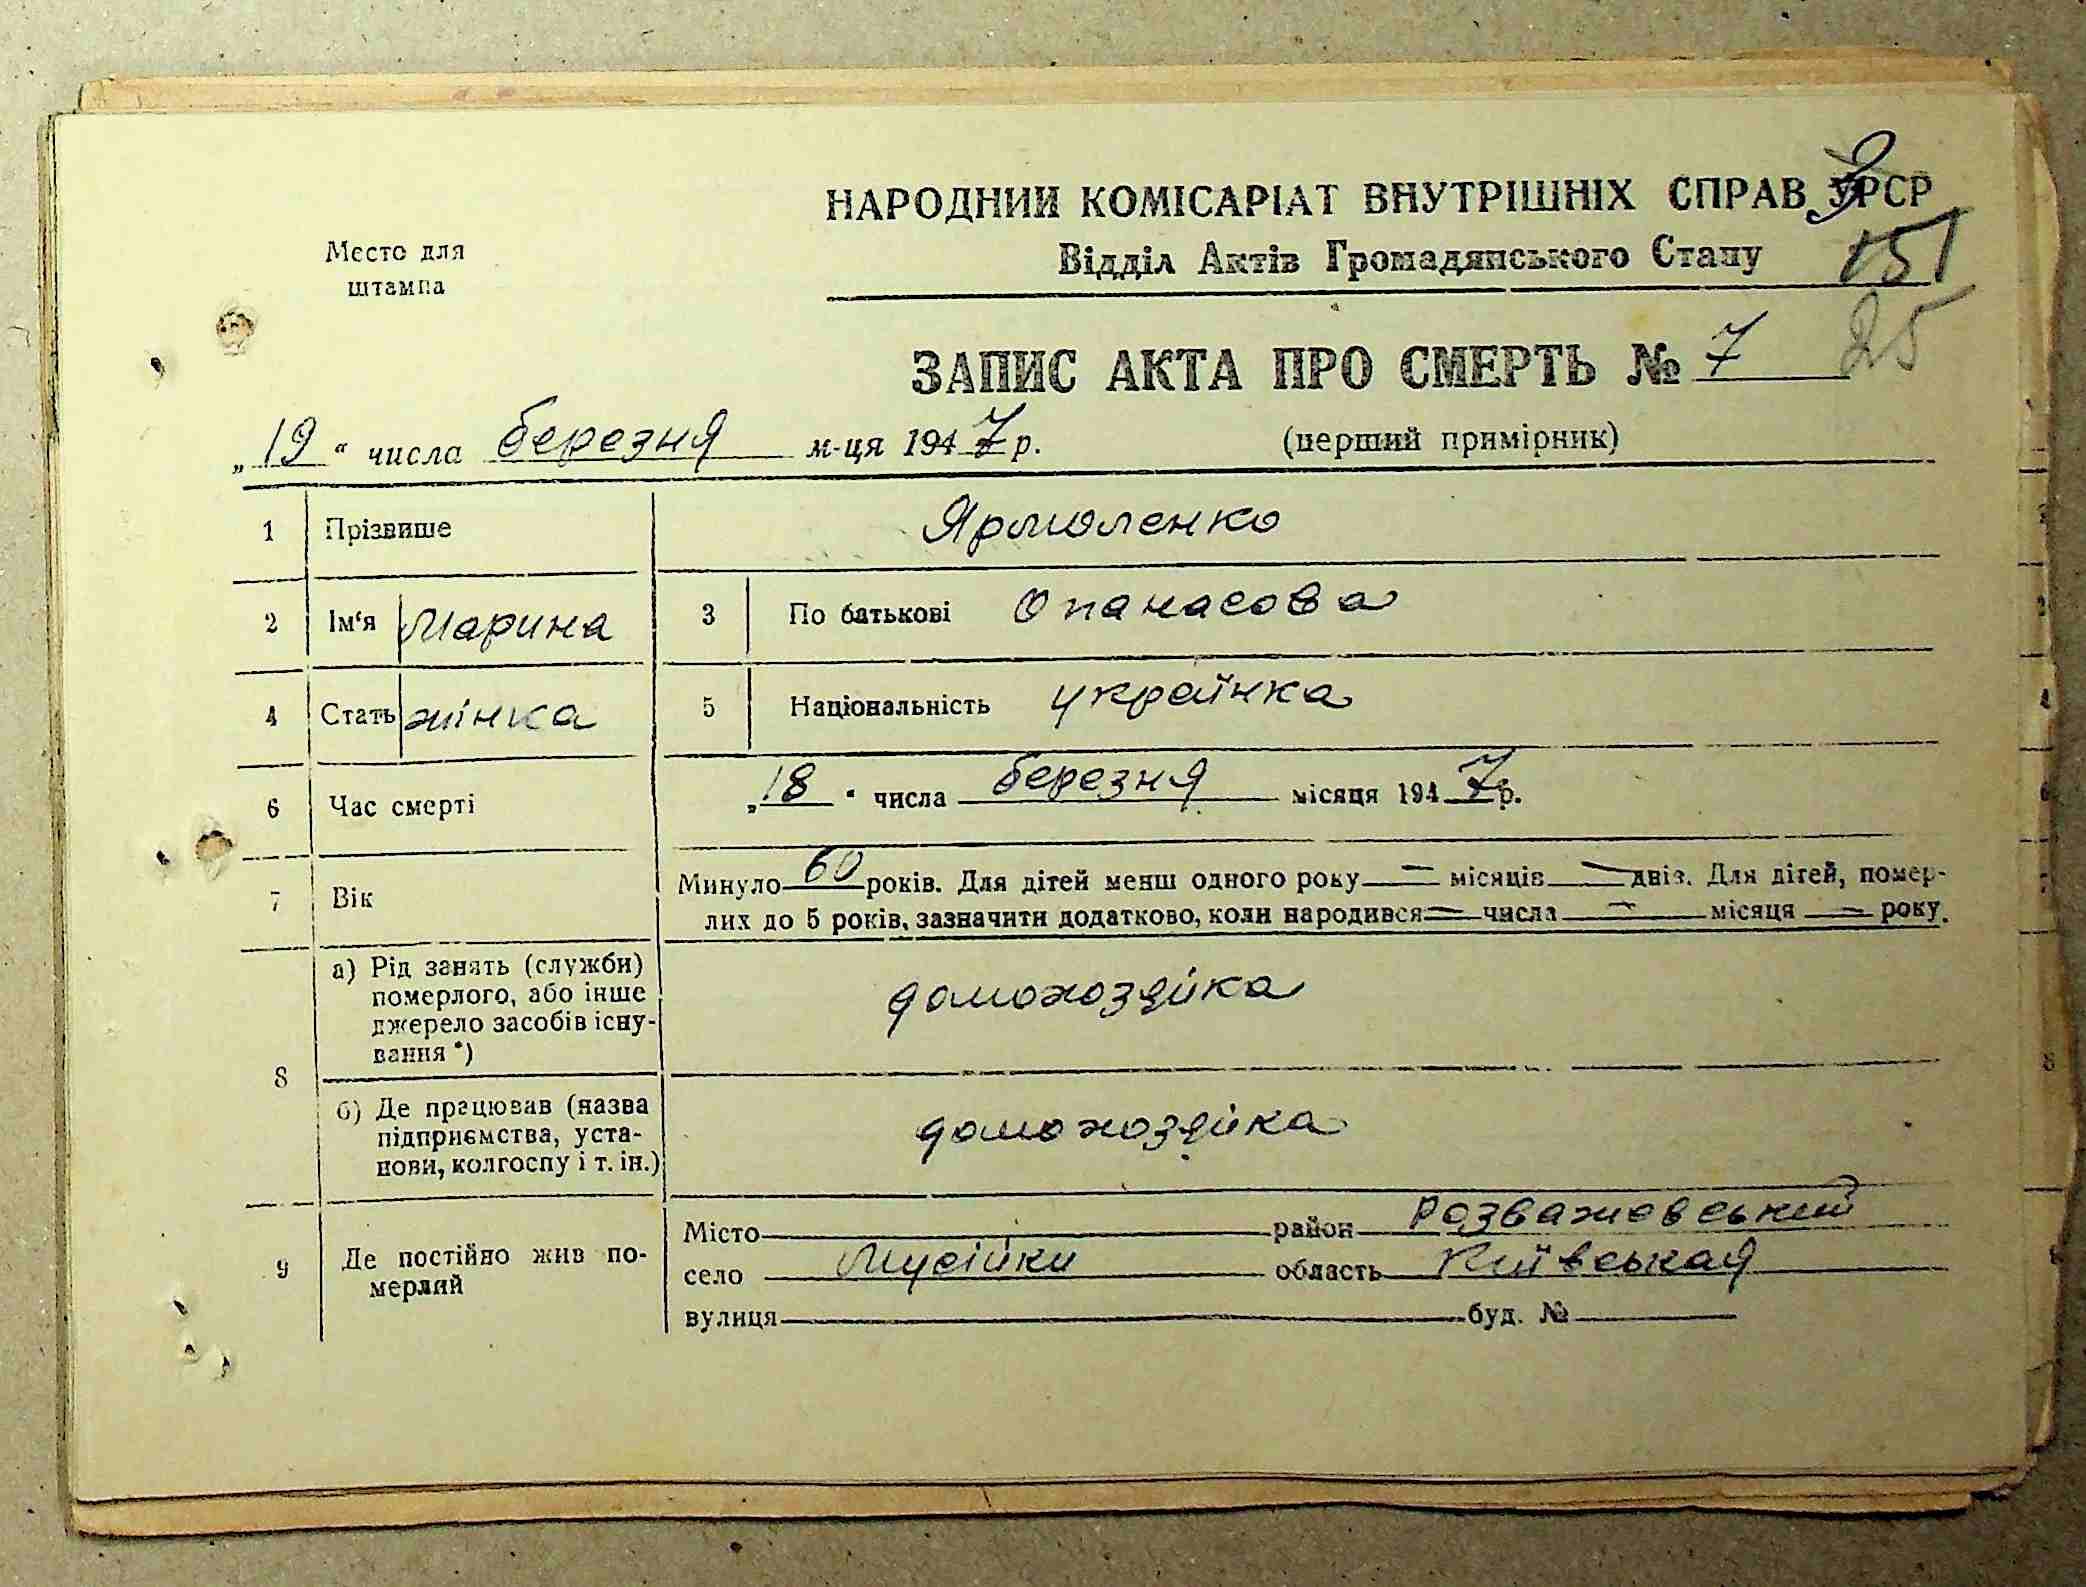 НАРОДНИЙ КОМІСАРІАТ ВНУТРІШНІХ СПРАВ УРСР
Место для штампа
Відділ Актів Громадянського Стану
151
25
ЗАПИС АКТА ПРО СМЕРТЬ № 7
„19“ числа березня м-ця 1947 р.
(перший примірник)
1 Прізвише Ярмоленко
2 Ім‘я Марина 3 По батькові Опанасова
4 Стать жінка 5 Національність українка
6 Час смерті „18“ числа березня місяця 1947 р.
7 Вік Минуло 60 років. Для дітей менш одного року — місяців — днів. Для дітей, помер-
лих до 5 років, зазначити додатково, коли народився — числа — місяця — року.
8 а) Рід занять (служби)
померлого, або інше
джерело засобів існу-
вання *)
домохозяйка
б) Де працював (назва
підприємства, уста-
нови, колгоспу і т. ін.)
домохозяйка
9 Де постійно жив по-
мерлий
Місто — район Розважевський
село Мусійки область Київськая
вулиця — буд. № —